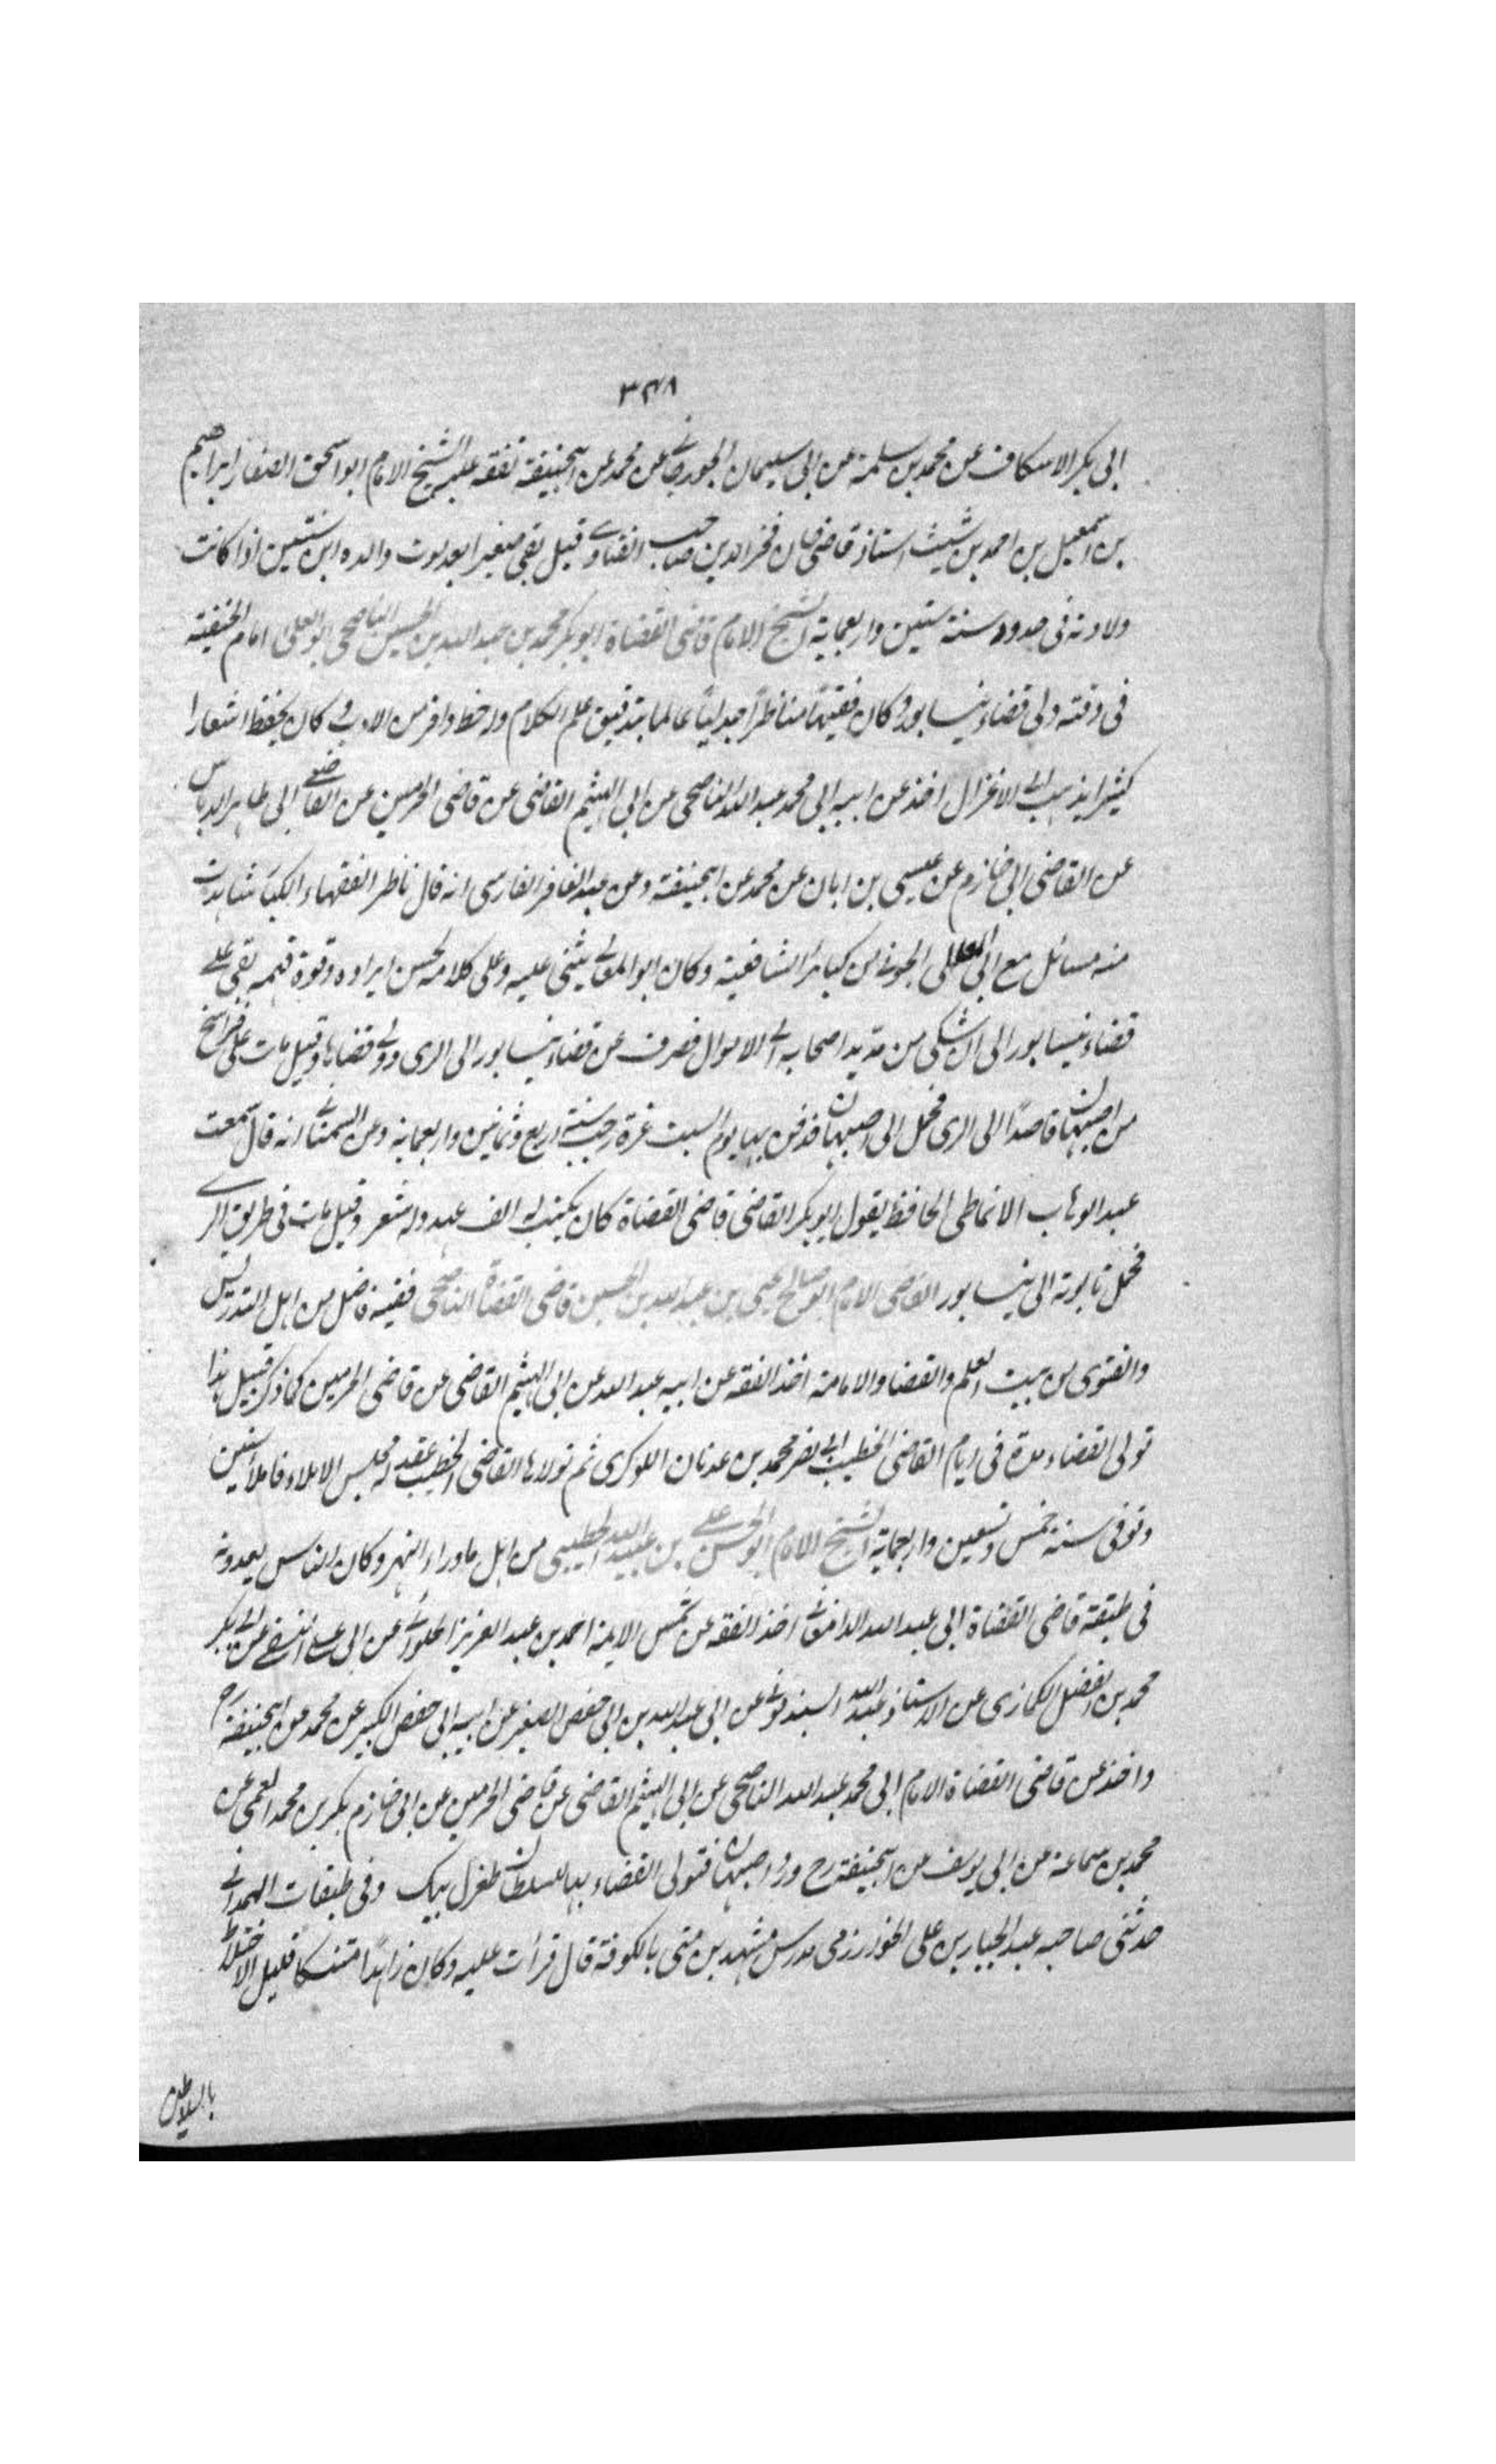 ٣٤٨
ابى بكر الاسكاف عن محمد بن سلمة عن ابى سليمان الجورجانے عن محمد عن ابيحنيفة تفقه عليه الشيخ الامام ابو اسحق الصفار ابراهيم
بن اسمعيل بن احمد بن شيث استاذ قاضى خان فخر الدين صاحب الفتاوے قيل بقى صغيرا بعد موت والده ابن سنتين اذا كانت
ولادته فى حدود سنة ستين واربعماية الشيخ الامام قاضى القضاة ابو بكر محمد بن عبد الله بن الحسين الناصحى ابو العلى امام الحنفية
فى وقته ولى قضاء نيسابور وكان فقيها مناظرًا جدليًا عالما بتدقيق علم الكلام وله حظ وافر من الادب وكان يحفظ اشعارا
كثيرا يذهب الى الاعتزال اخذ عن ابيه ابى محمد عبد الله الناصحى عن ابى الهيثم القاضى عن قاضى الحرمين عن القاضے ابى طاهر الدباس
عن القاضى ابى خازم عن عيسى بن ابان عن محمد عن ابيحنيفة وعن عبد الغافر الفارسى انه قال ناظر الفقهاء الكبار شاهدت
منه مسائل مع ابى المعالى الجوينے من كبائر الشافعية وكان ابو المعالے يثنى عليه وعلى كلامه لحسن ايراده وقوة فهمه بقى علے
قضاء نيسابور الى ان شكى من تديد اصحابه الى الاموال فصرف عن قضاء نيسابور الى الرى وولى قضاءها وقيل مات على فراسخ
من اصبهان قاصدًا الى الرى فحمل الى اصبهان فدفن بها يوم السبت غرة رجب سنة اربع وثمانين واربعمانة وعن السمعانے انه قال سمعت
عبد الوهاب الانماطى الحافظ يقول ابو بكر القاضى قاضى القضاة كان يكتب له الف عبد وله شعر وقيل مات فى طريق الرے
فحمل تابوته الى نيسابور القاضى الامام ابو صالح يحيى بن عبد الله بن الحسين قاضى القضاة الناصحى فقيه فاضل من اهل التدريس
والفتوى من بيت العلم والقضا والامامة اخذ الفقه عن ابيه عبد الله عن ابى الهيثم القاضى عن قاضى الحرمين كما ذكر قبيل هذا
تولى القضاء مدة فى ايام القاضى الخطيب ابى نصر محمد بن عدنان اللوكرى ثم تولاها القاضى الخطيب عقد له مجلس الاملاء فاملا سنين
وتوفى سنة خمس وتسعين واربعماية الشيخ الامام ابو الحسن على بن عبيد الله الخطيبى من اهل ماوراء النهر وكان الناس يعدونه
فى طبقة قاضى القضاة ابى عبد الله الدامغانے اخذ الفقه عن شمس الايمة احمد بن عبد العزيز الحلوانے عن ابى على النسفے عن ابى بكر
محمد بن الفضل الكمازى عن الاستاذ عبد الله السبذمونے عن ابى عبد الله بن ابى حفص الصغير عن ابيه ابى حفص الكبير عن محمد عن ابيحنيفة رح
واخذ عن قاضى القضاة الامام ابى محمد عبد الله الناصحى عن ابى الهيثم القاضى عن قاضى الحرمين عن ابى خازم بكر بن محمد العمى عن
محمد بن سماعة عن ابى يوسف عن ابيحنيفة رح ورد اصبهان فتولى القضاء بها للسلطان طغرل بيك وفى طبقات الهمدانے
حدثنى صاحبه عبد الجبار بن على الخوارزمى مدرس مشهد بن متى بالكوفة قال قرأت عليه وكان زاهدًا متنسكا قليل الاختلاط
بالسلاطين